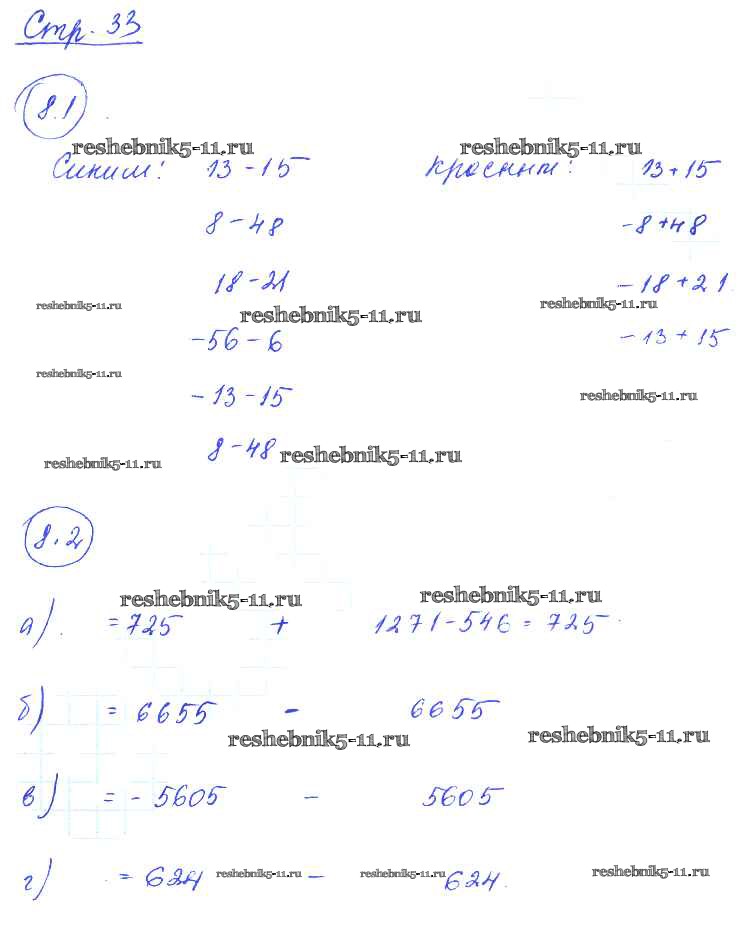 Стр. 33
8.1
reshebnik5-11.ru reshebnik5-11.ru
Синим: 13 - 15 Красным: 13 + 15
8 - 48 -8 + 48
18 - 21 -18 + 21
reshebnik5-11.ru reshebnik5-11.ru reshebnik5-11.ru
-56 - 6 -13 + 15
reshebnik5-11.ru
-13 - 15 reshebnik5-11.ru
8 - 48 reshebnik5-11.ru
reshebnik5-11.ru
8.2
reshebnik5-11.ru reshebnik5-11.ru
а) = 725 + 1271 - 546 = 725
б) = 6655 - 6655
reshebnik5-11.ru reshebnik5-11.ru
в) = - 5605 - 5605
г) = 624 reshebnik5-11.ru - reshebnik5-11.ru 624. reshebnik5-11.ru